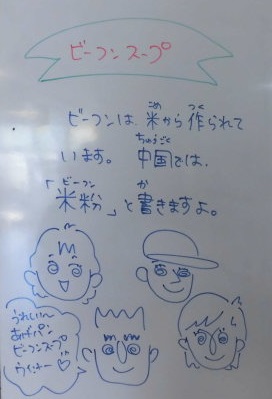 ビーフンスープ
ビーフンは、米から作られて
こめ つく
います。中国では、
ちゅうごく
「米粉」と書きますよ。
ビーフン か
うれしい〜
あげパン
ビーフンスープ
ウインナー♡